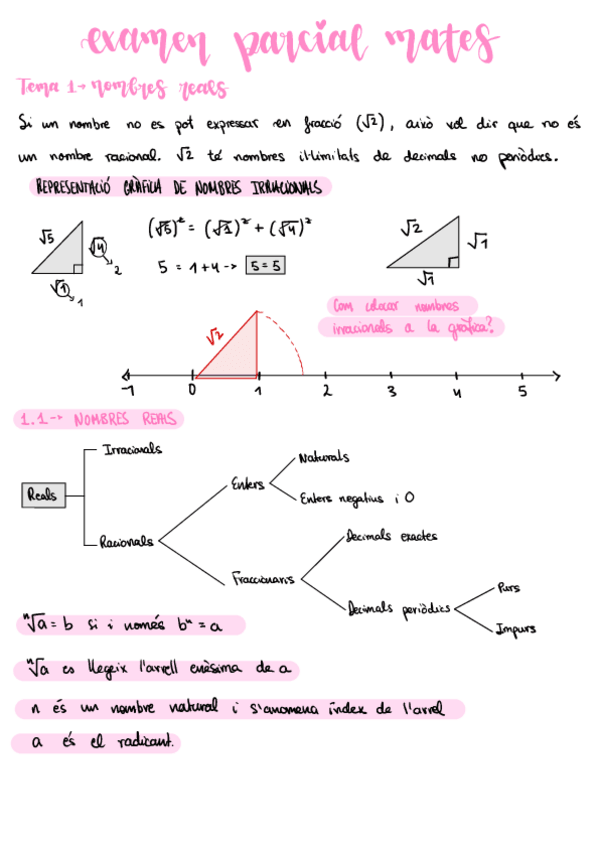 examen parcial mates
Tema 1→ nombres reals
Si un nombre no es pot expressar en fracció (√2), això vol dir que no és
un nombre racional. √2 té nombres il·limitats de decimals no periòdics.
REPRESENTACIÓ GRÀFICA DE NOMBRES IRRACIONALS
√5 √4 2 √1 1
(√5)² = (√1)² + (√4)²
5 = 1+4 -> 5=5
√2 √1 √1
Com colocar nombres
irracionals a la gràfica?
√2
-1 0 1 2 3 4 5
1.1-> NOMBRES REALS
Reals
Irracionals
Racionals
Enters
Naturals
Enters negatius i 0
Fraccionaris
Decimals exactes
Decimals periòdics
Purs
Impurs
ⁿ√a = b si i només bⁿ = a
ⁿ√a es llegeix l'arrell enèsima de a
n és un nombre natural i s'anomena índex de l'arrel
a és el radicant.